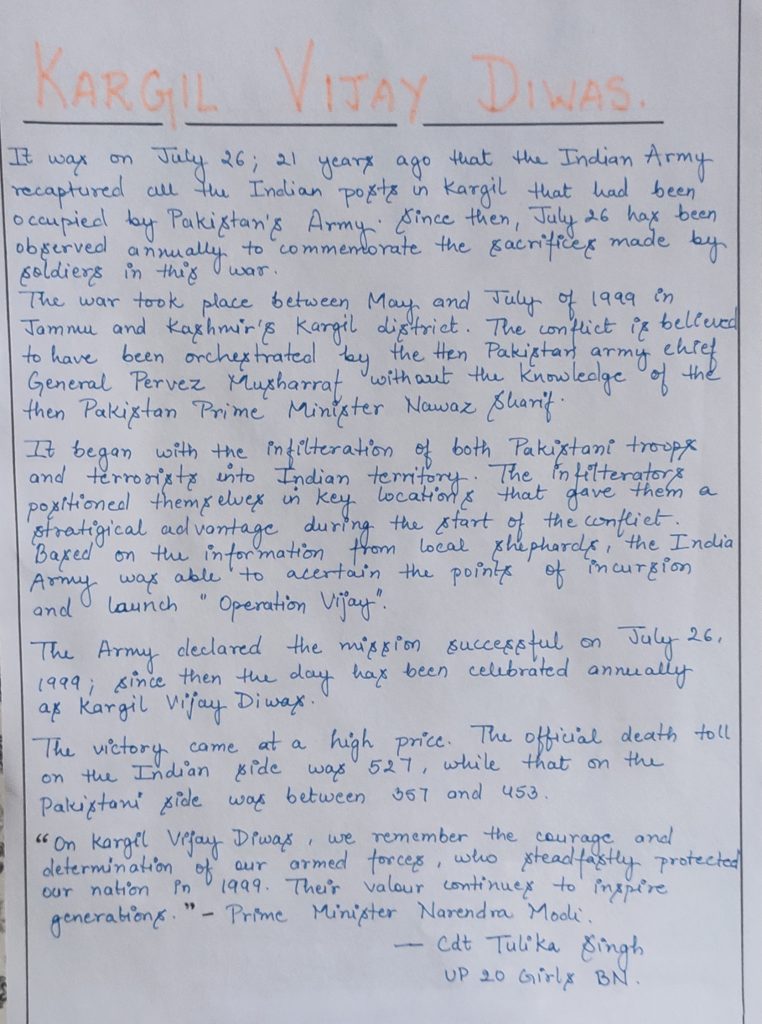 KARGIL VIJAY DIWAS.
It was on July 26; 21 years ago that the Indian Army
recaptured all the Indian posts in Kargil that had been
occupied by Pakistan's Army. Since then, July 26 has been
observed annually to commemorate the sacrifices made by
soldiers in this war.
The war took place between May and July of 1999 in
Jammu and Kashmir's Kargil district. The conflict is believed
to have been orchestrated by the then Pakistan army chief
General Pervez Musharraf without the knowledge of the
then Pakistan Prime Minister Nawaz Sharif.
It began with the infilteration of both Pakistani troops
and terrorists into Indian territory. The infilterators
positioned themselves in key locations that gave them a
stratigical advantage during the start of the conflict.
Based on the information from local shephards, the India
Army was able to acertain the points of incursion
and launch "Operation Vijay".
The Army declared the mission successful on July 26,
1999; since then the day has been celebrated annually
as Kargil Vijay Diwas.
The victory came at a high price. The official death toll
on the Indian side was 527, while that on the
Pakistani side was between 357 and 453.
"On Kargil Vijay Diwas, we remember the courage and
determination of our armed forces, who steadfastly protected
our nation in 1999. Their valour continues to inspire
generations." - Prime Minister Narendra Modi.
— Cdt Tulika Singh
UP 20 Girls BN.